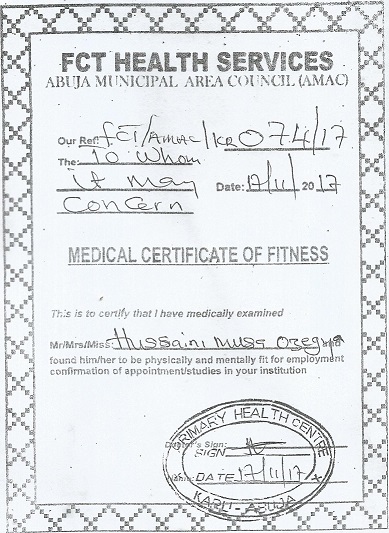 FCT HEALTH SERVICES
ABUJA MUNICIPAL AREA COUNCIL (AMAC)
Our Ref: FCT/AMAC/KR 074/17
The: To Whom
it may
Concern
Date: 17/11/ 2017
MEDICAL CERTIFICATE OF FITNESS
This is to certify that I have medically examined
Mr/Mrs/Miss Hussaini Musa
found him/her to be physically and mentally fit for employment
confirmation of appointment/studies in your institution
PRIMARY HEALTH CENTRE
Doctor's Sign:
SIGN
DATE 17/11/17
KARU - ABUJA